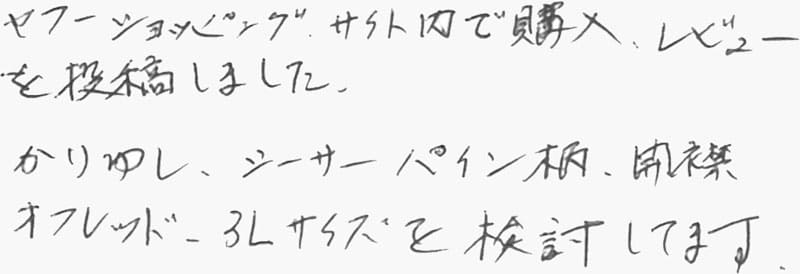 ヤフーショッピング、サイト内で購入、レビュー
を投稿しました。
かりゆし、シーサーパイン柄、開襟
オフレッド、3Lサイズを検討してます。